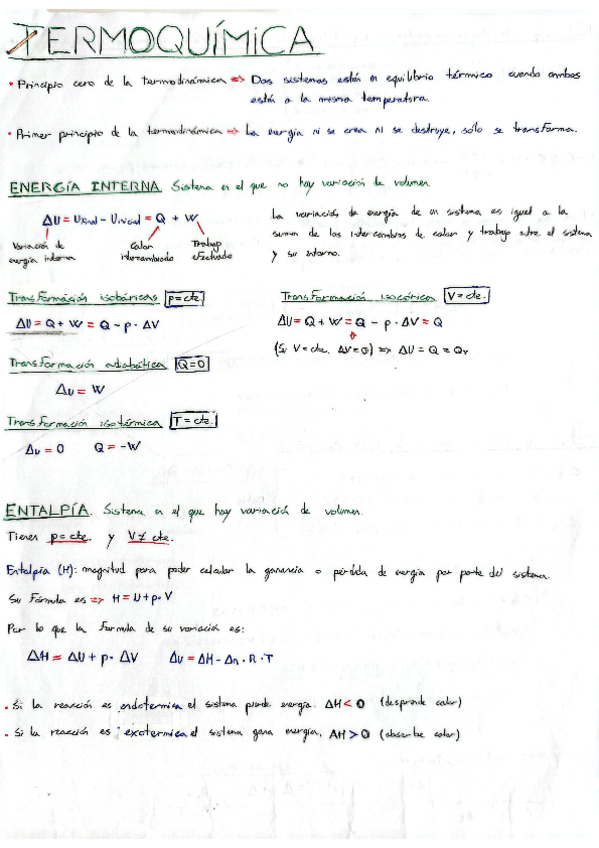 TERMOQUÍMICA
• Principio cero de la termodinámica => Dos sistemas están en equilibrio térmico cuando ambos
están a la misma temperatura.
• Primer principio de la termodinámica => La energía ni se crea ni se destruye, sólo se transforma.
ENERGÍA INTERNA. Sistema en el que no hay variación de volumen.
ΔU = Ufinal - Uinicial = Q + W
Variación de energía interna
Calor intercambiado
Trabajo efectuado
La variación de energía de un sistema es igual a la
suma de los intercambios de calor y trabajo entre el sistema
y su entorno.
Transformación isobáricas p = cte.
ΔU = Q + W = Q - p · ΔV
Transformación isocórica V = cte.
ΔU = Q + W = Q - p · ΔV = Q
0
(Si V = cte. ΔV = 0) => ΔU = Q = Qv
Transformación adiabática Q = 0
ΔU = W
Transformación isotérmica T = cte.
ΔU = 0 Q = -W
ENTALPÍA. Sistema en el que hay variación de volumen.
Tienen p = cte. y V ≠ cte.
Entalpía (H): magnitud para poder calcular la ganancia o pérdida de energía por parte del sistema.
Su fórmula es => H = U + p · V
Por lo que la formula de su variación es:
ΔH = ΔU + p · ΔV ΔU = ΔH - Δn · R · T
• Si la reacción es endotermica el sistema pierde energía. ΔH < 0 (desprende calor)
• Si la reacción es exotermica el sistema gana energía, ΔH > 0 (absorbe calor)